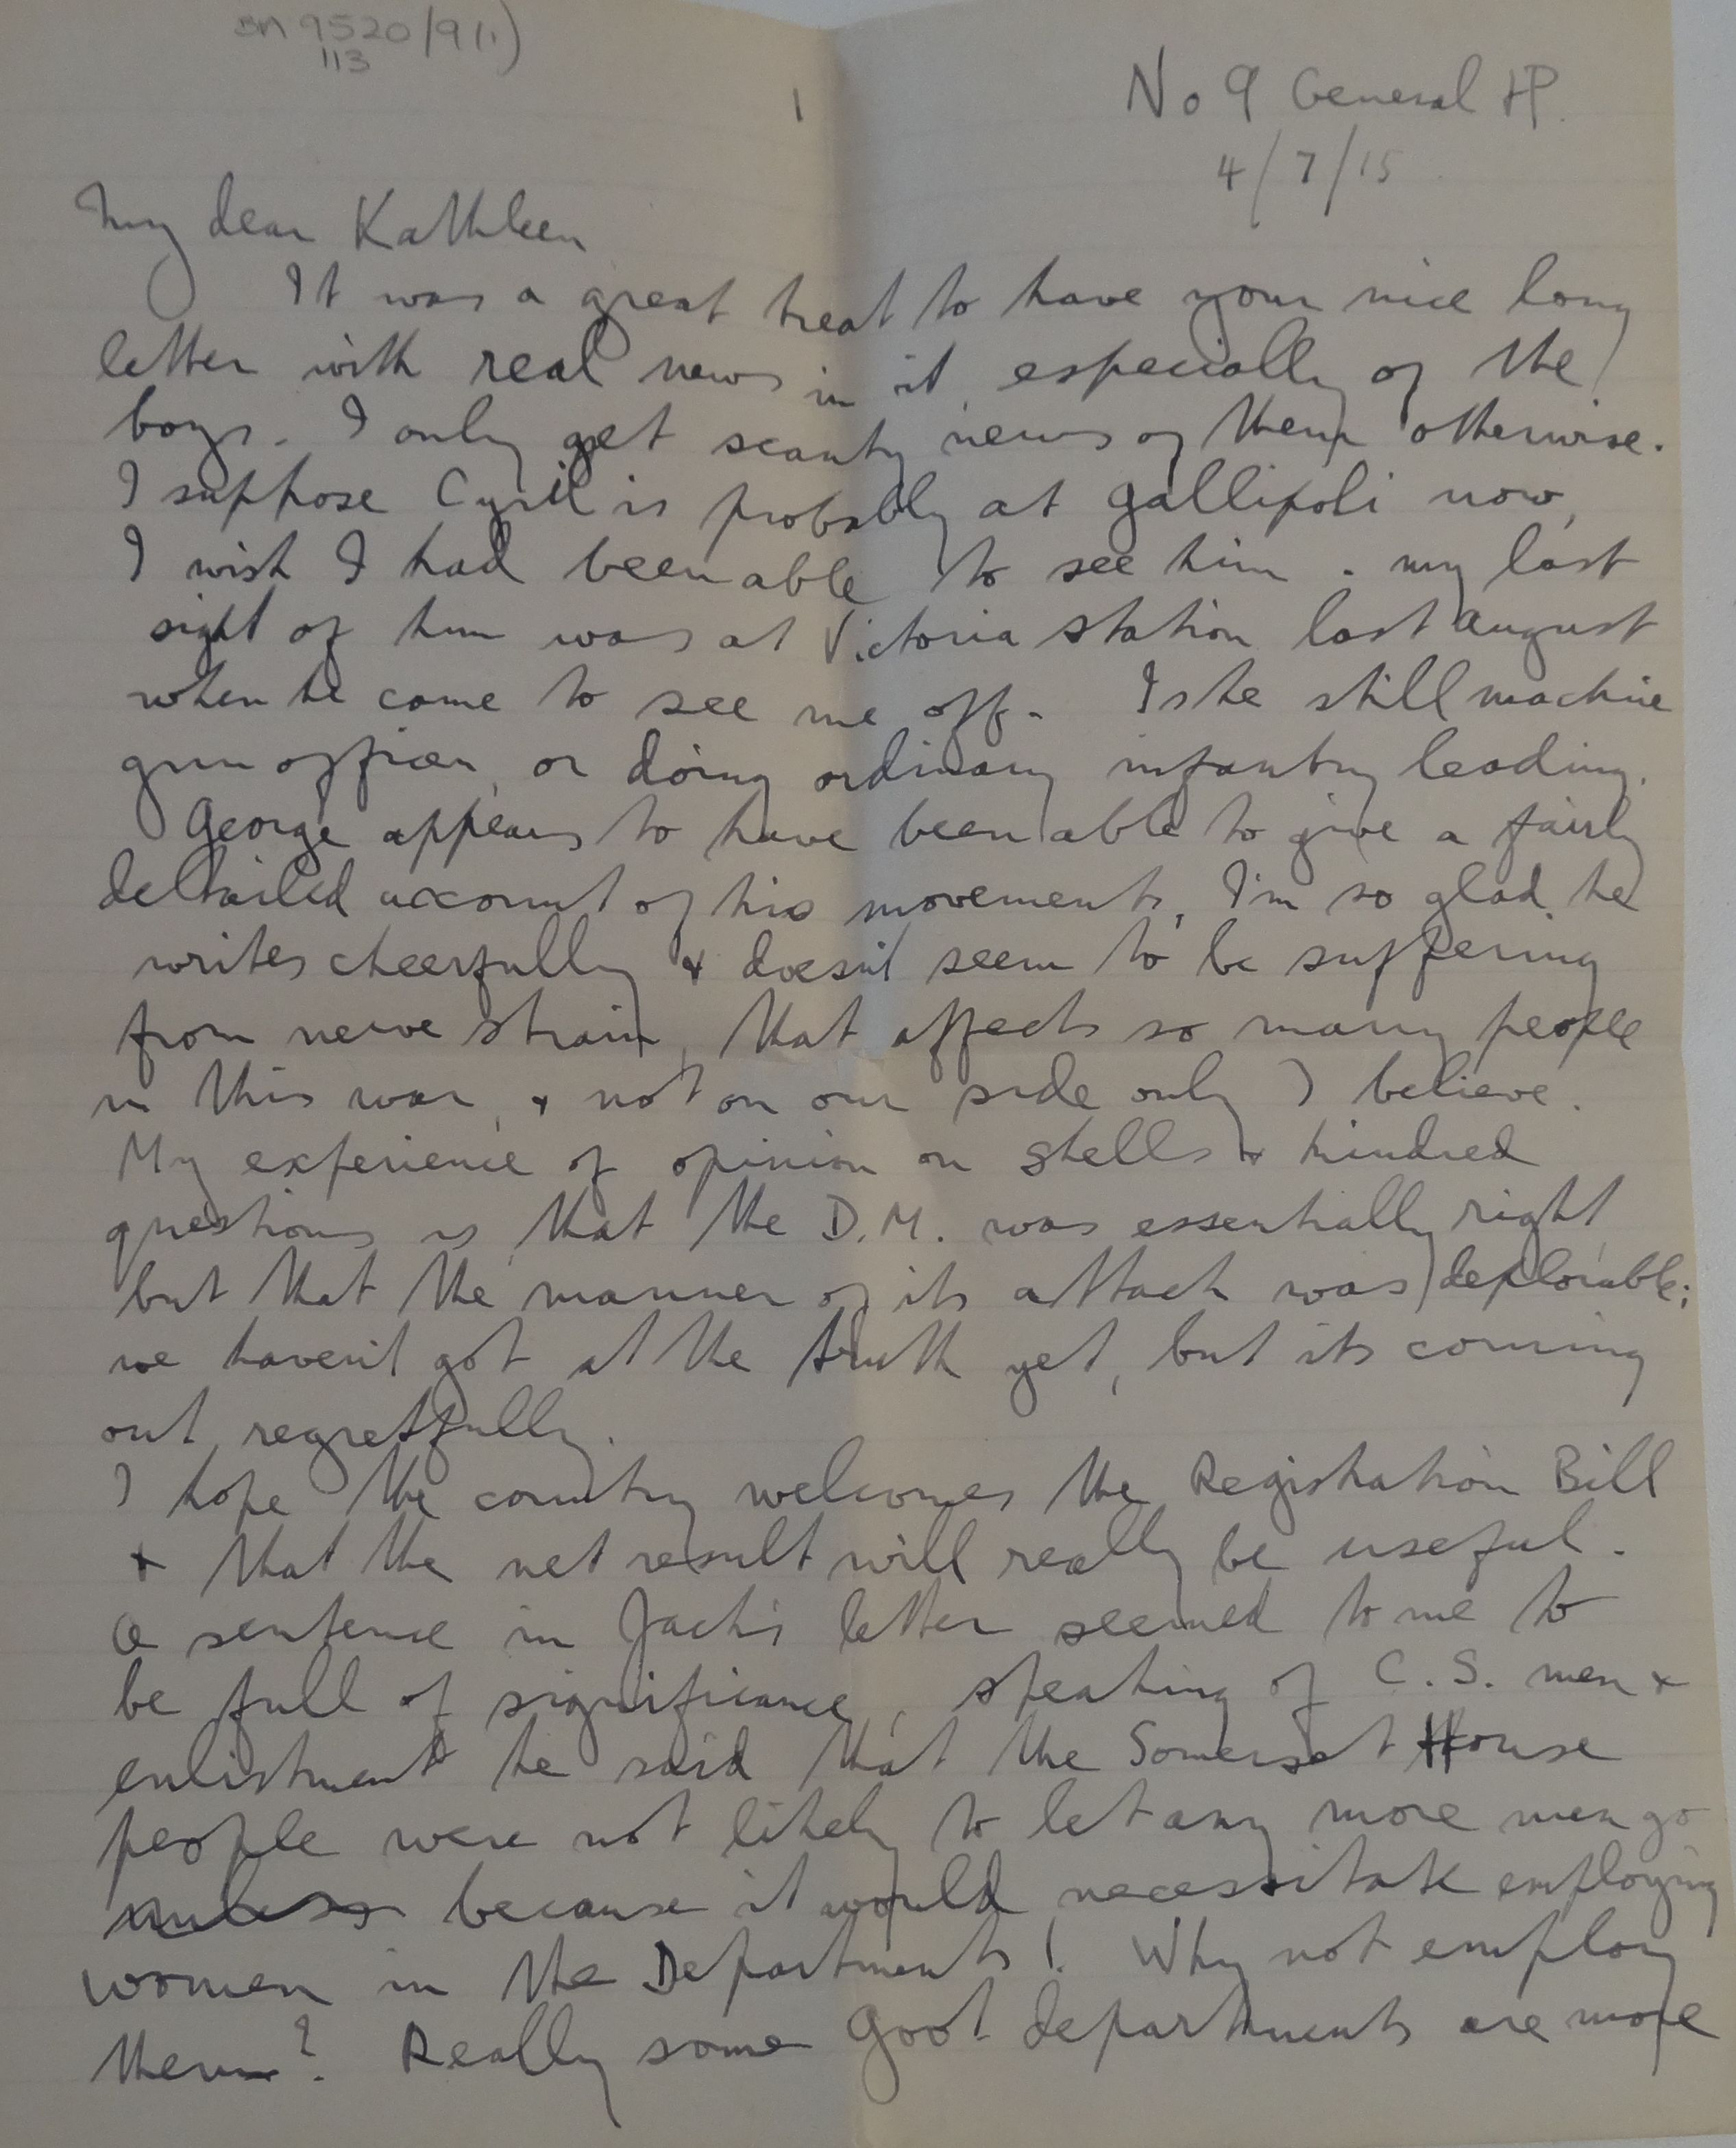 9520/9(1)
113
1
No 9 General HP.
4/7/15
My dear Kathleen
It was a great treat to have your nice long
letter with real news in it, especially of the
boys. I only get scanty news of them otherwise.
I suppose Cyril is probably at Gallipoli now,
I wish I had been able to see him. my last
sight of him was at Victoria station last August
when he came to see me off. Is he still machine
gun officer, or doing ordinary infantry leading.
George appears to have been able to give a fairly
detailed account of his movements, I'm so glad he
writes cheerfully & doesn't seem to be suffering
from nerve strain, that affects so many people
in this war, & not on our side only I believe.
My experience of opinion on shells & kindred
questions is that the D.M. was essentially right,
but that the manner of its attack was deplorable;
we haven't got at the truth yet, but its coming
out, regretfully.
I hope the country welcomes the Registration Bill
& that the net result will really be useful.
A sentence in Jack's letter seemed to me to
be full of significance, speaking of C.S. men &
enlistment he said that the Somerset House
people were not likely to let any more men go
unless because it would necessitate employing
women in the Departments! Why not employ
them? Really some Govt departments are more